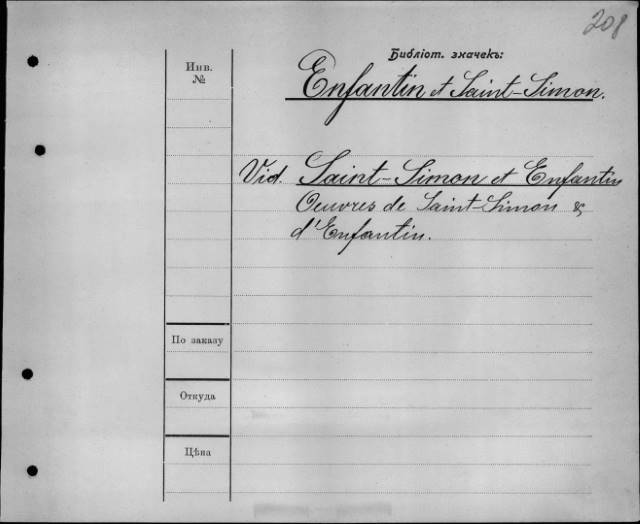 208
Библіот. значекъ:
Инв.
№
Enfantin et Saint-Simon.
Vid. Saint-Simon et Enfantin
Oeuvres de Saint-Simon &
d'Enfantin.
По заказу
Откуда
Цѣна